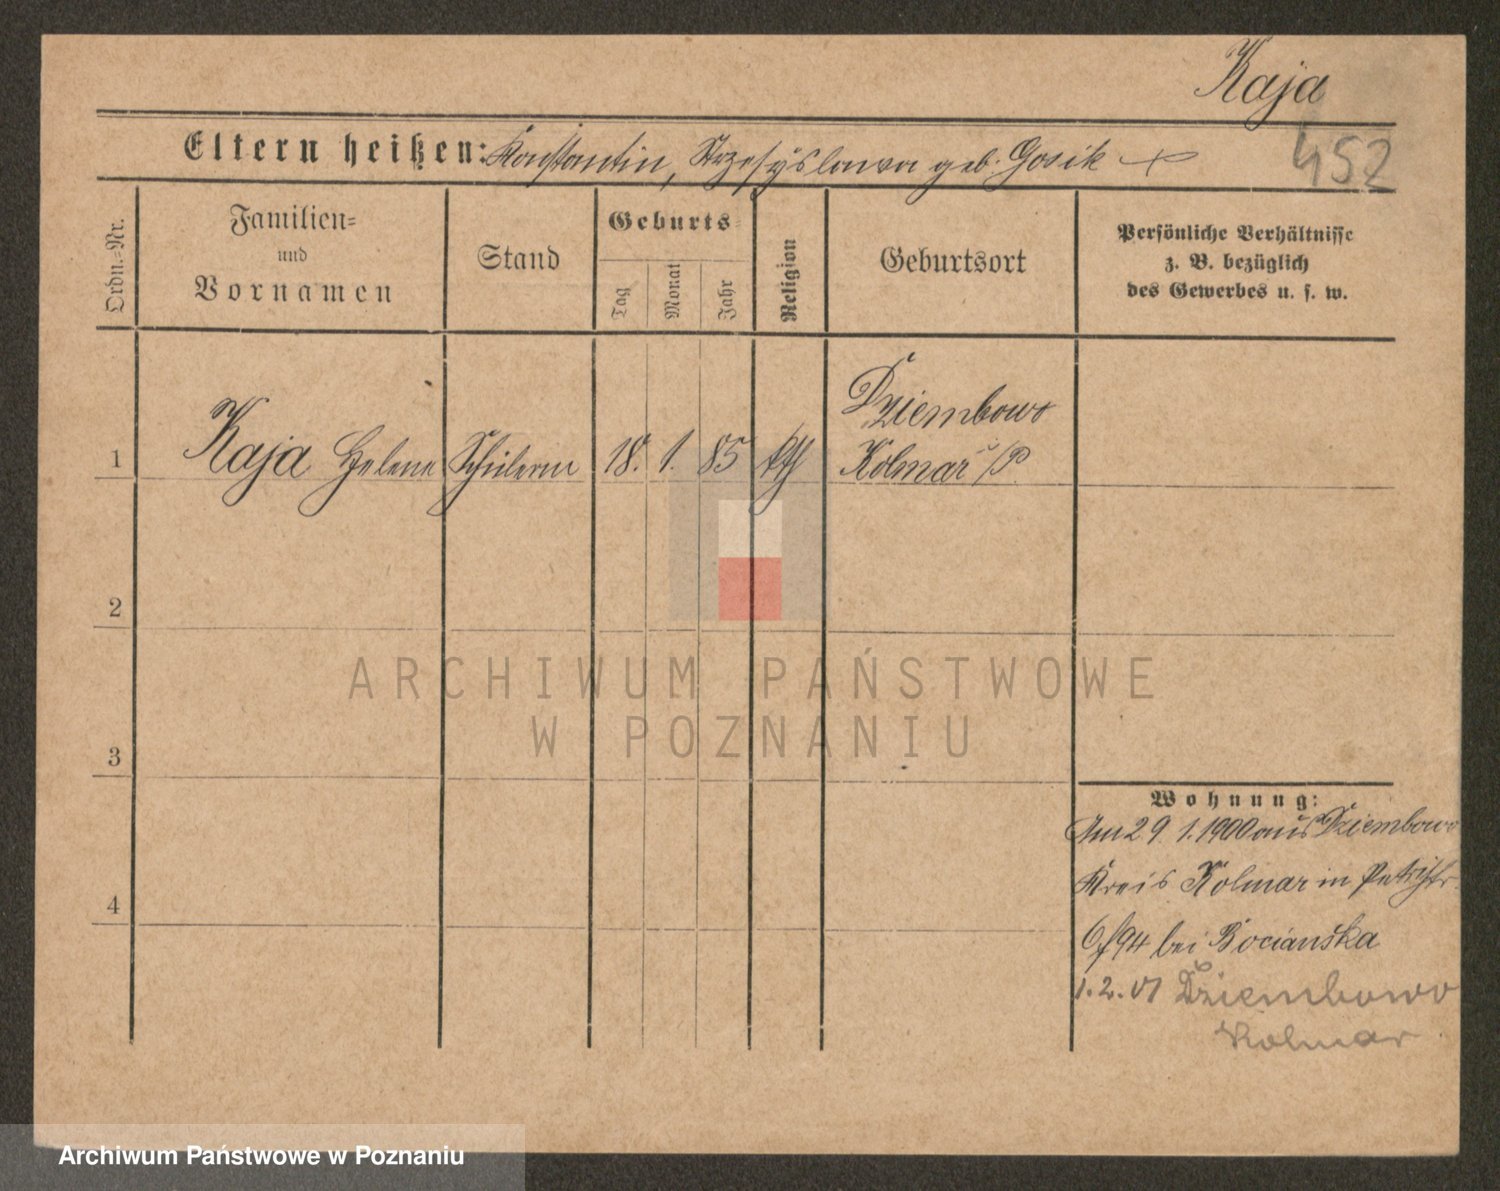 Kaja
452
Eltern heißen: Konstantin, geb. Gosik
Ordn.-Nr.
Familien-
und
Vornamen
Stand
Geburts-
Tag
Monat
Jahr
Religion
Geburtsort
Persönliche Verhältnisse
z. B. bezüglich
des Gewerbes u. s. w.
Dziembowo
1 Kaja Helene Schülerin 18. 1. 85 kth Kolmar i/P.
2
3
4
ARCHIWUM PAŃSTWOWE
W POZNANIU
Wohnung:
Am 29. 1. 1900 aus Dziembowo
Kreis Kolmar in
bei Bocianska
1. 2. 01 Dziembowo
Kolmar
Archiwum Państwowe w Poznaniu